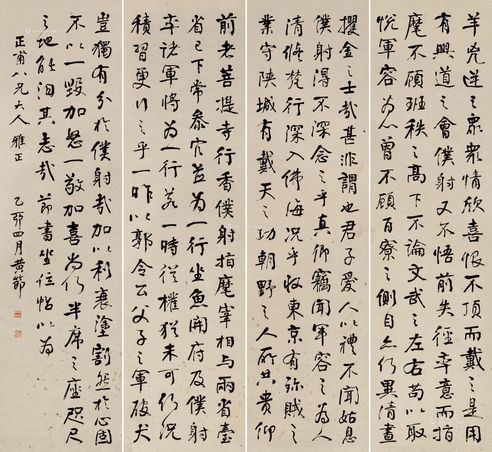 羊兇逆之眾眾情欣喜恨不頂而戴之是用
有興道之會僕射又不悟前失徑率意而指
麾不顧班秩之高下不論文武之左右苟以取
悅軍容為心曾不顧百寮之側目亦何異清晝
攫金之士哉甚非謂也君子愛人以禮不聞姑息
僕射得不深念之乎真卿竊聞軍容之為人
清修梵行深入佛海況乎收東京有殄賊之
業守陝城有戴天之功朝野之人所共貴仰
前者菩提寺行香僕射指麾宰相與兩省臺
省已下常參官並為一行坐魚開府及僕射
率諸軍將為一行若一時從權猶未可何況
積習更行之乎一昨以郭令公父子之軍破犬
豈獨有分於僕射哉加以利衰塗割然於心固
不以一毀加怒一敬加喜尚何半席之座咫尺
之地能汨其志哉 節書坐位帖以為
正甫八兄大人雅正 四月黃節